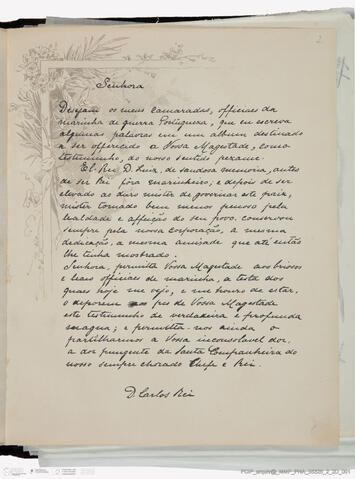 2
Senhora
Desejam os meus camaradas, officiaes da
marinha de guerra Portugueza, que eu escreva
algumas palavras em um album destinado
a ser offerecido a Vossa Magestade, como
testimunho, do nosso sentido pezame.
El-Rei D. Luiz, de saudosa memoria, antes
de ser Rei fôra marinheiro, e depois de ser
elevado ao duro mister de governar este paiz,
mister tornado bem menos penoso pela
lealdade e affeição do seu povo, conservou
sempre pela nossa corporação, a mesma
dedicação, a mesma amizade que até então
lhe tinha mostrado.
Senhora, permitta Vossa Magestade aos briosos
e leaes officiaes da marinha, a testa dos
quaes hoje me vejo, e me honro de estar,
o deporem aos pés de Vossa Magestade
este testimunho de verdadeira e profunda
magua; e permitta-nos ainda o
partilharmos a Vossa inconsolavel dor,
a dor pungente da Santa Companheira do
nosso sempre chorado Chefe e Rei.
D. Carlos Rei